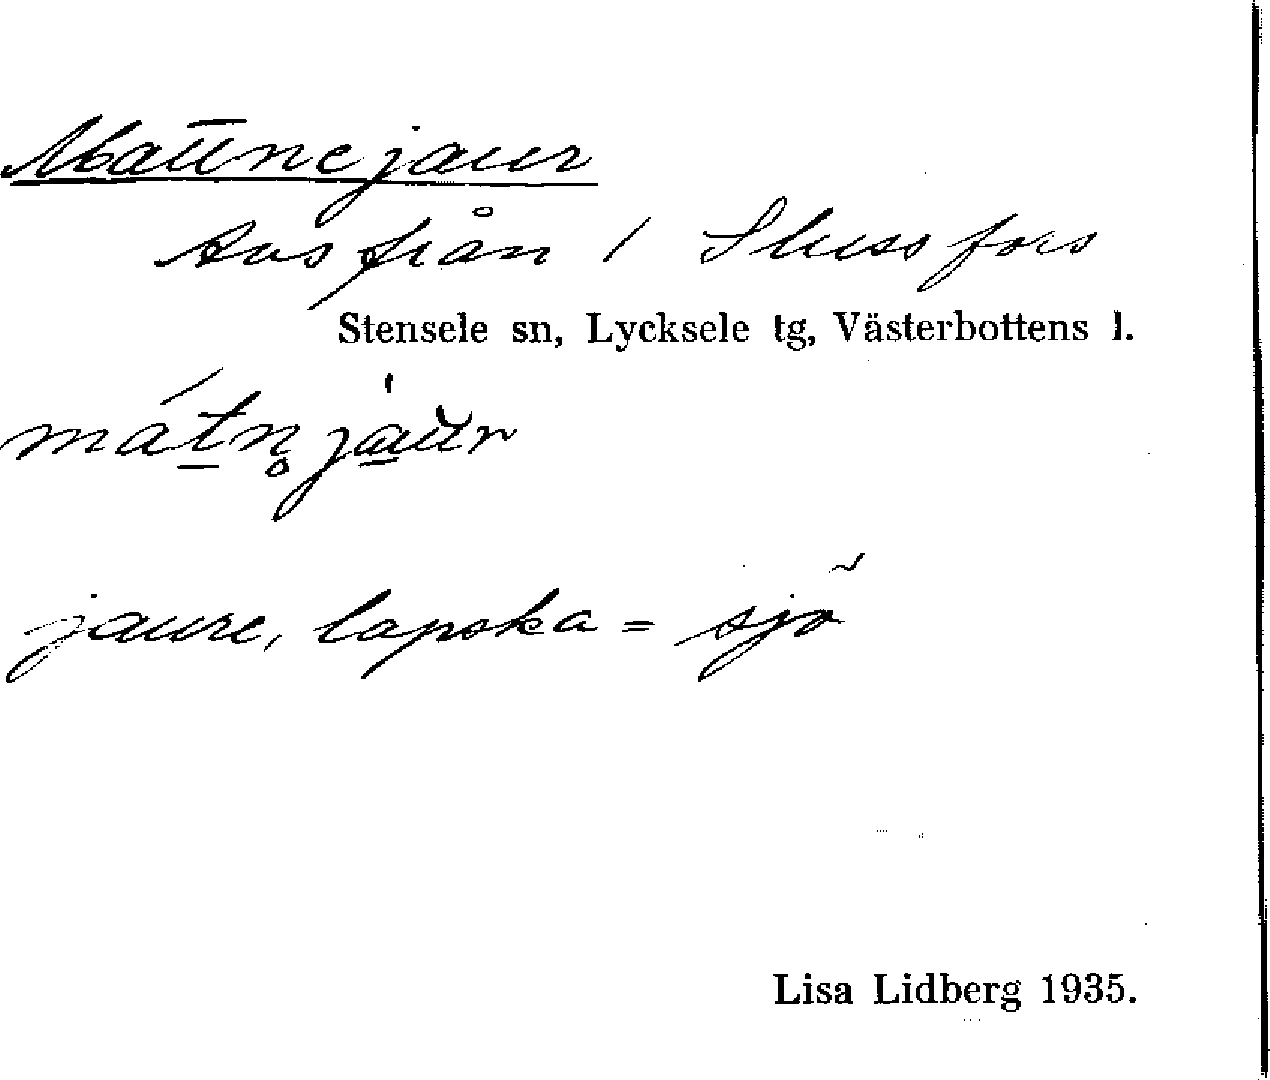 Mattnejaur
Avs från / Slussfors
Stensele sn, Lycksele tg, Västerbottens l.
mátn̥ jau̯r
jaure, lapska = sjö
Lisa Lidberg 1935.